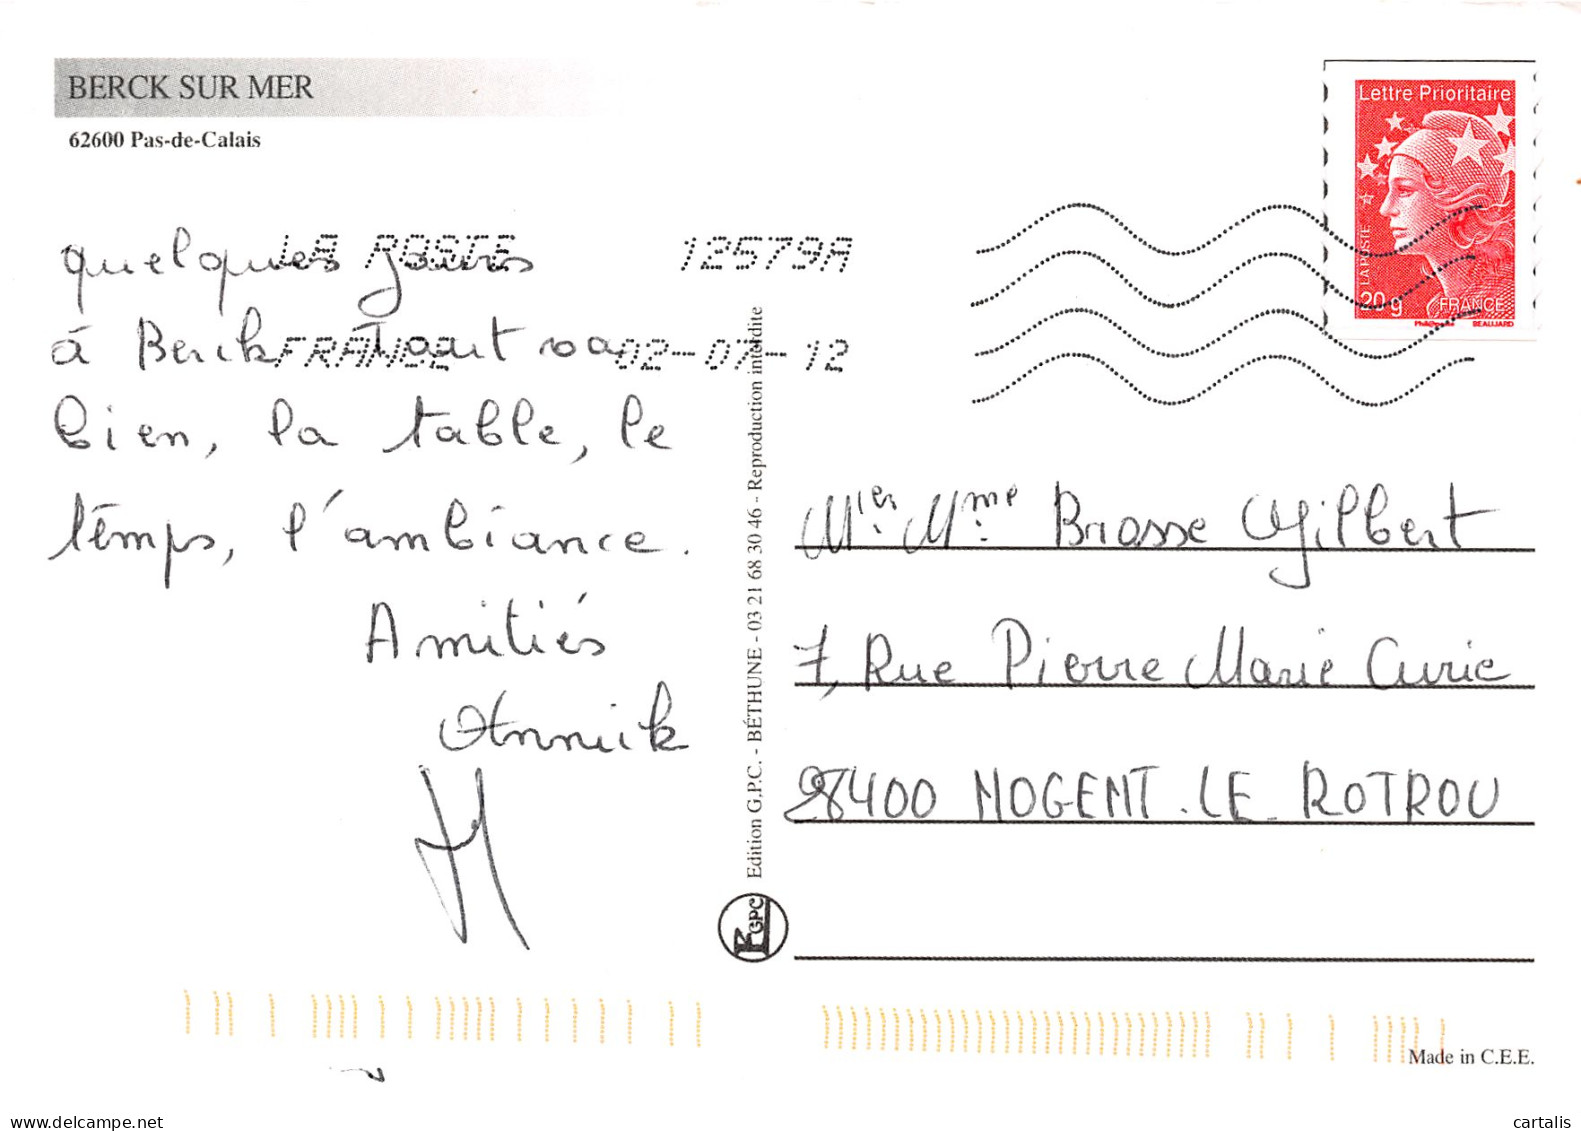 BERCK SUR MER
62600 Pas-de-Calais
Lettre Prioritaire
LA POSTE
20g FRANCE
Phil@poste BEAUJARD
LA POSTE 12579A
FRANCE 02-07-12
quelques jours
à Berck Tout va
bien, la table, le
temps, l'ambiance.
Amitiés
Annick
Mr et Mme Brosse Gilbert
7, Rue Pierre Marie Curie
28400 NOGENT.LE.ROTROU
Edition G.P.C. - BÉTHUNE - 03 21 68 30 46 - Reproduction interdite
GPC
Made in C.E.E.
www.delcampe.net
cartalis